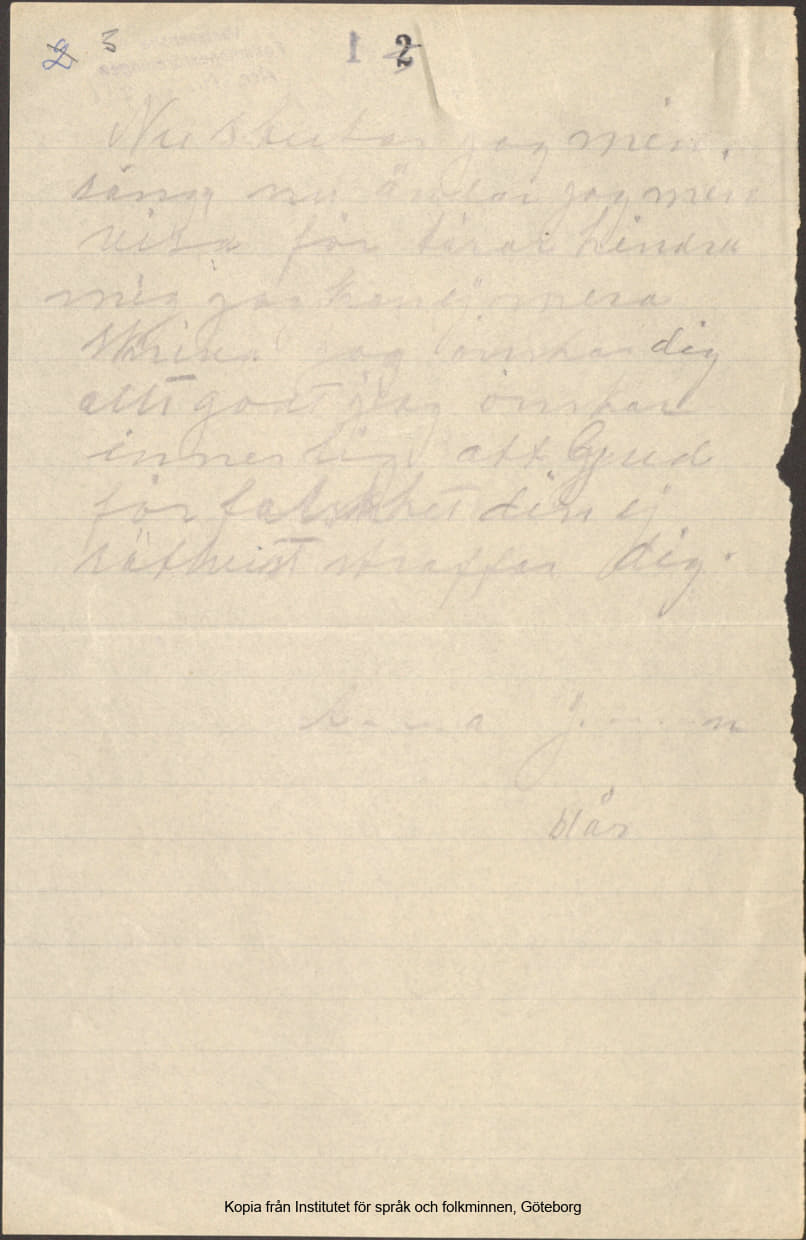 2 3 1 2
Nu slutar jag min
sång nu ändar jag min
visa för tårar hindra
mig jag kan ej mera
skriva jag önskar dig
allt gott jag önskar
innerlig att Gud
för falskhet din ej
rättvist straffar dig.
Kopia från Institutet för språk och folkminnen, Göteborg